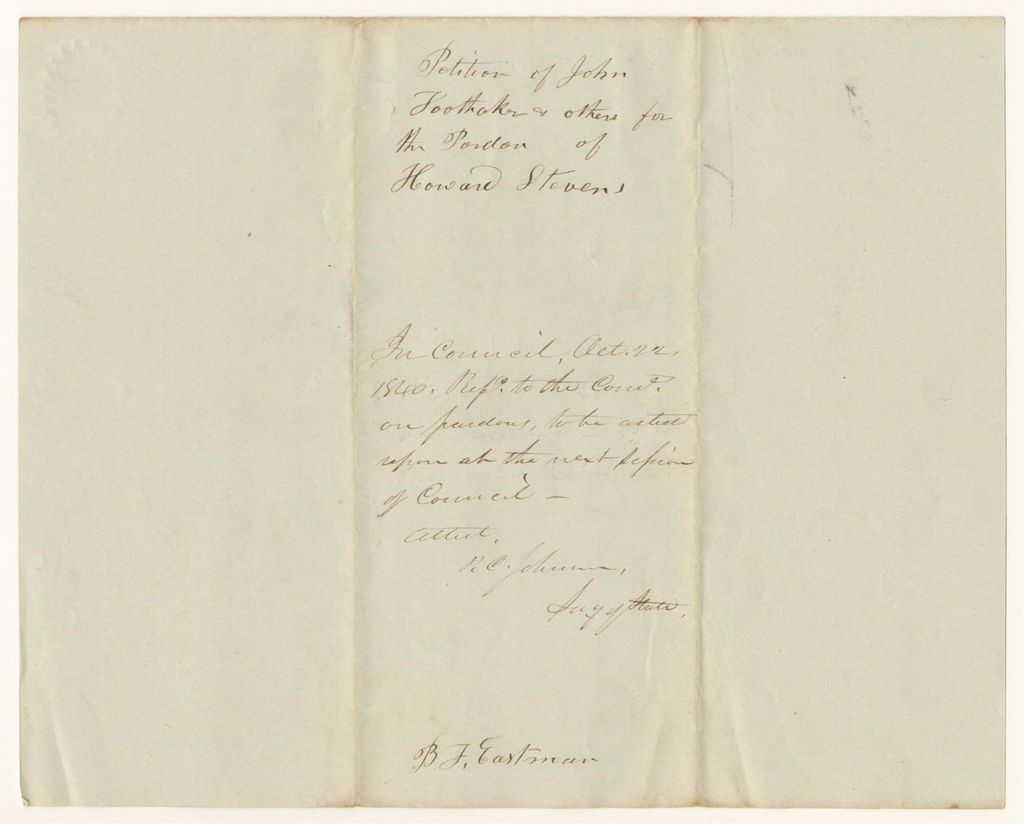 Petition of John
Foothaker & others for
the Pardon of
Howard Stevens
In Council, Oct. 22,
1840. Refd. to the Comee.
on pardons, to be acted
upon at the next Session
of Council —
Attest,
P. C. Johnson,
Secy of State.
B F. Eastman